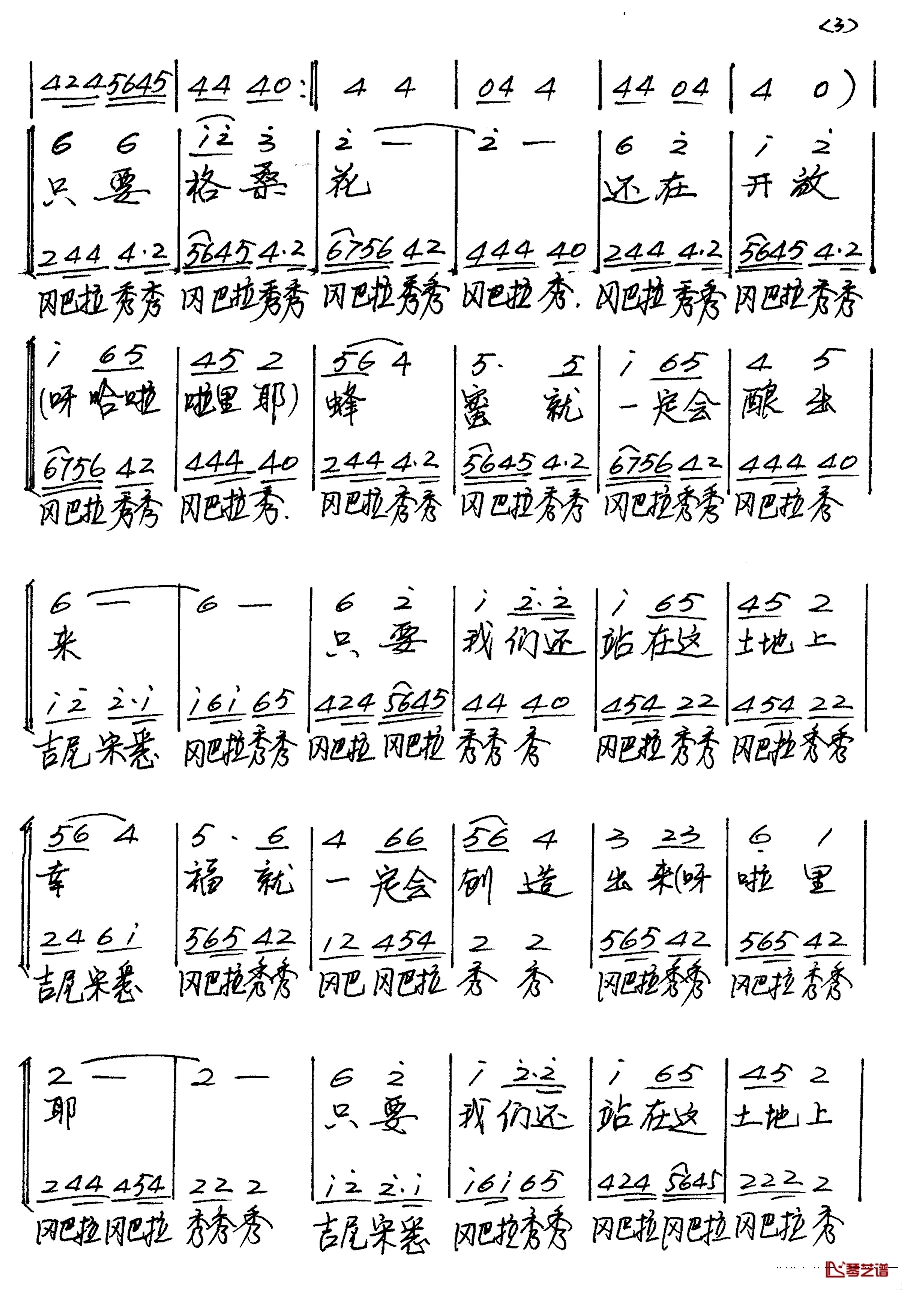 (3)
424 5645 | 44 40 :‖ 4 4 | 04 4 | 44 04 | 4 0 )
6 6 | i̇ 2̇ 3̇ | 2̇ — | 2̇ — | 6 2̇ | i̇ 2̇
只要 格桑 花 还在 开放
244 4·2 | 5645 4·2 | 6756 42 | 444 40 | 244 4·2 | 5645 4·2
冈巴拉秀秀 冈巴拉秀秀 冈巴拉秀秀 冈巴拉秀. 冈巴拉秀秀 冈巴拉秀秀
i̇ 65 | 45 2 | 56 4 | 5· 5 | i̇ 65 | 4 5
(呀哈啦 啦里耶) 蜂 蜜就 一定会 酿出
6756 42 | 444 40 | 244 4·2 | 5645 4·2 | 6756 42 | 444 40
冈巴拉秀秀 冈巴拉秀. 冈巴拉秀秀 冈巴拉秀秀 冈巴拉秀秀 冈巴拉秀
6 — | 6 — | 6 2̇ | i̇ 2̇·2̇ | i̇ 65 | 45 2
来 只要 我们还 站在这 土地上
i̇ 2̇ 2̇·i̇ | i̇6i̇ 65 | 424 5645 | 44 40 | 454 22 | 454 22
吉尾宋悉 冈巴拉秀秀 冈巴拉 冈巴拉 秀秀秀 冈巴拉秀秀 冈巴拉秀秀
56 4 | 5· 6 | 4 66 | 56 4 | 3 23 | 6̣ 1
幸 福就 一定会 创造 出来(呀 啦里
24 6i̇ | 565 42 | 12 454 | 2 2 | 565 42 | 565 42
吉尾宋悉 冈巴拉秀秀 冈巴 冈巴拉 秀秀 冈巴拉秀秀 冈巴拉秀秀
2 — | 2 — | 6 2̇ | i̇ 2̇·2̇ | i̇ 65 | 45 2
耶 只要 我们还 站在这 土地上
244 454 | 22 2 | i̇ 2̇ 2̇·i̇ | i̇6i̇ 65 | 424 5645 | 222 2
冈巴拉冈巴拉 秀秀秀 吉尾宋悉 冈巴拉秀秀 冈巴拉冈巴拉 冈巴拉秀
琴艺谱